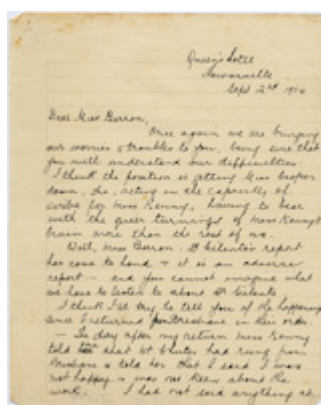 Queen's Hotel
Townsville
Sept 2nd 19
Dear Miss Barron,
Once again we are bringing
our worries & troubles to you, being sure that
you will understand our difficulties.
I think the position is getting Miss
down, she, acting in the capacity of
scribe for Miss Kenny, having to bear
with the queer turnings of Miss Kenny's
brain more than the rest of us.
Well, Miss Barron, Dr Cilento's report
has come to hand & it is an adverse
report — and you cannot imagine what
we have to listen to about Dr Cilento.
I think I'll try to tell you of the happenings
since I returned from Brisbane in their order.
— The day after my return Miss Kenny
told that Mr Chuter had rung from
Brisbane & told her that I said I was
not happy & was not keen about the
work. I had not said anything at